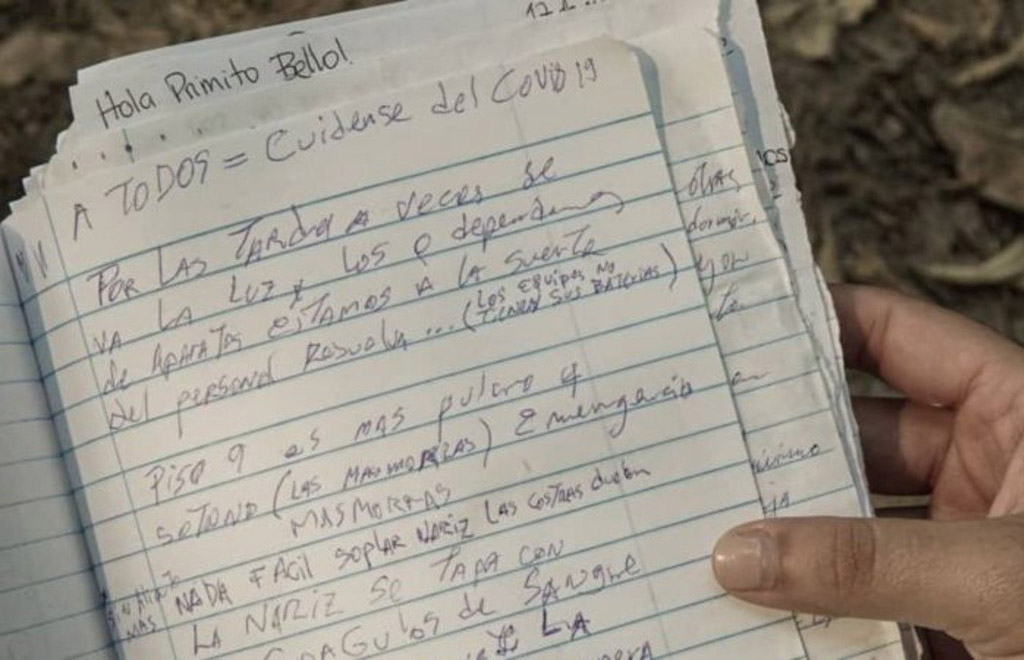 Hola Primito Bello!
A TODOS = Cuidense del COVID 19
POR LAS TARDES A veces se
VA LA LUZ y LOS Q dependemos
de APARATOS ESTAMOS A LA SUERTE
del personal Resuelva... (LOS EQUIPOS NO
TIENEN SUS BATERIAS)
PISO 9 es MAS pulcro q
SOTANO (LAS MAXMORRAS) Emergencia
MASMORRAS
NADA FACIL SOPLAR NARIZ LAS COSTRAS duelen
MAS
LA NARIZ SE TAPA CON
COAGULOS de SANGRE
y LA
otras
dormir.